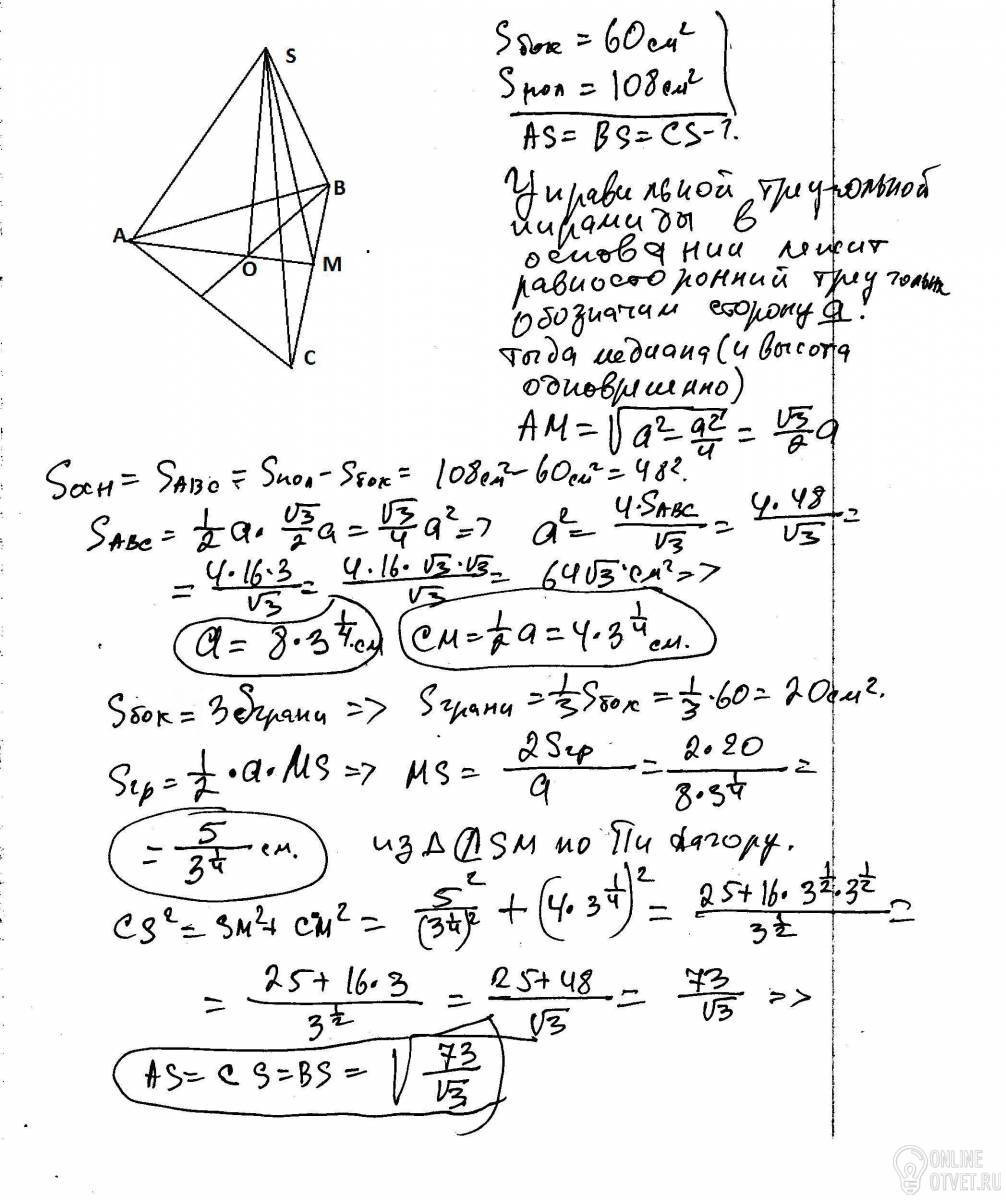 S
A
B
O
M
C
Sбок = 60 см²
Sпол = 108 см²
AS = BS = CS - ?
У правильной треугольной
пирамиды в
основании лежит
равносторонний треугольник
Обозначим сторону a.
тогда медиана (и высота
одновременно)
AM = √(a² - a²/4) = √3/2 a
Sосн = SABC = Sпол - Sбок = 108 см² - 60 см² = 48².
SABC = 1/2 a · √3/2 a = √3/4 a² => a² = 4·SABC/√3 = 4·48/√3 =
= 4·16·3/√3 = 4·16·√3·√3/√3 = 64√3 · см² =>
a = 8·3^(1/4) см CM = 1/2 a = 4·3^(1/4) см.
Sбок = 3Sграни => Sграни = 1/3 Sбок = 1/3 · 60 = 20 см².
Sгр = 1/2 · a · MS => MS = 2Sгр/a = 2·20/8·3^(1/4) =
= 5/3^(1/4) см. из Δ CSM по Пифагору.
CS² = SM² + CM² = 5²/(3^(1/4))² + (4·3^(1/4))² = 25+16·3^(1/2)·3^(1/2)/3^(1/2) =
= 25+16·3/3^(1/2) = 25+48/√3 = 73/√3 =>
AS = CS = BS = √(73/√3)
ONLINE
OTVET.RU